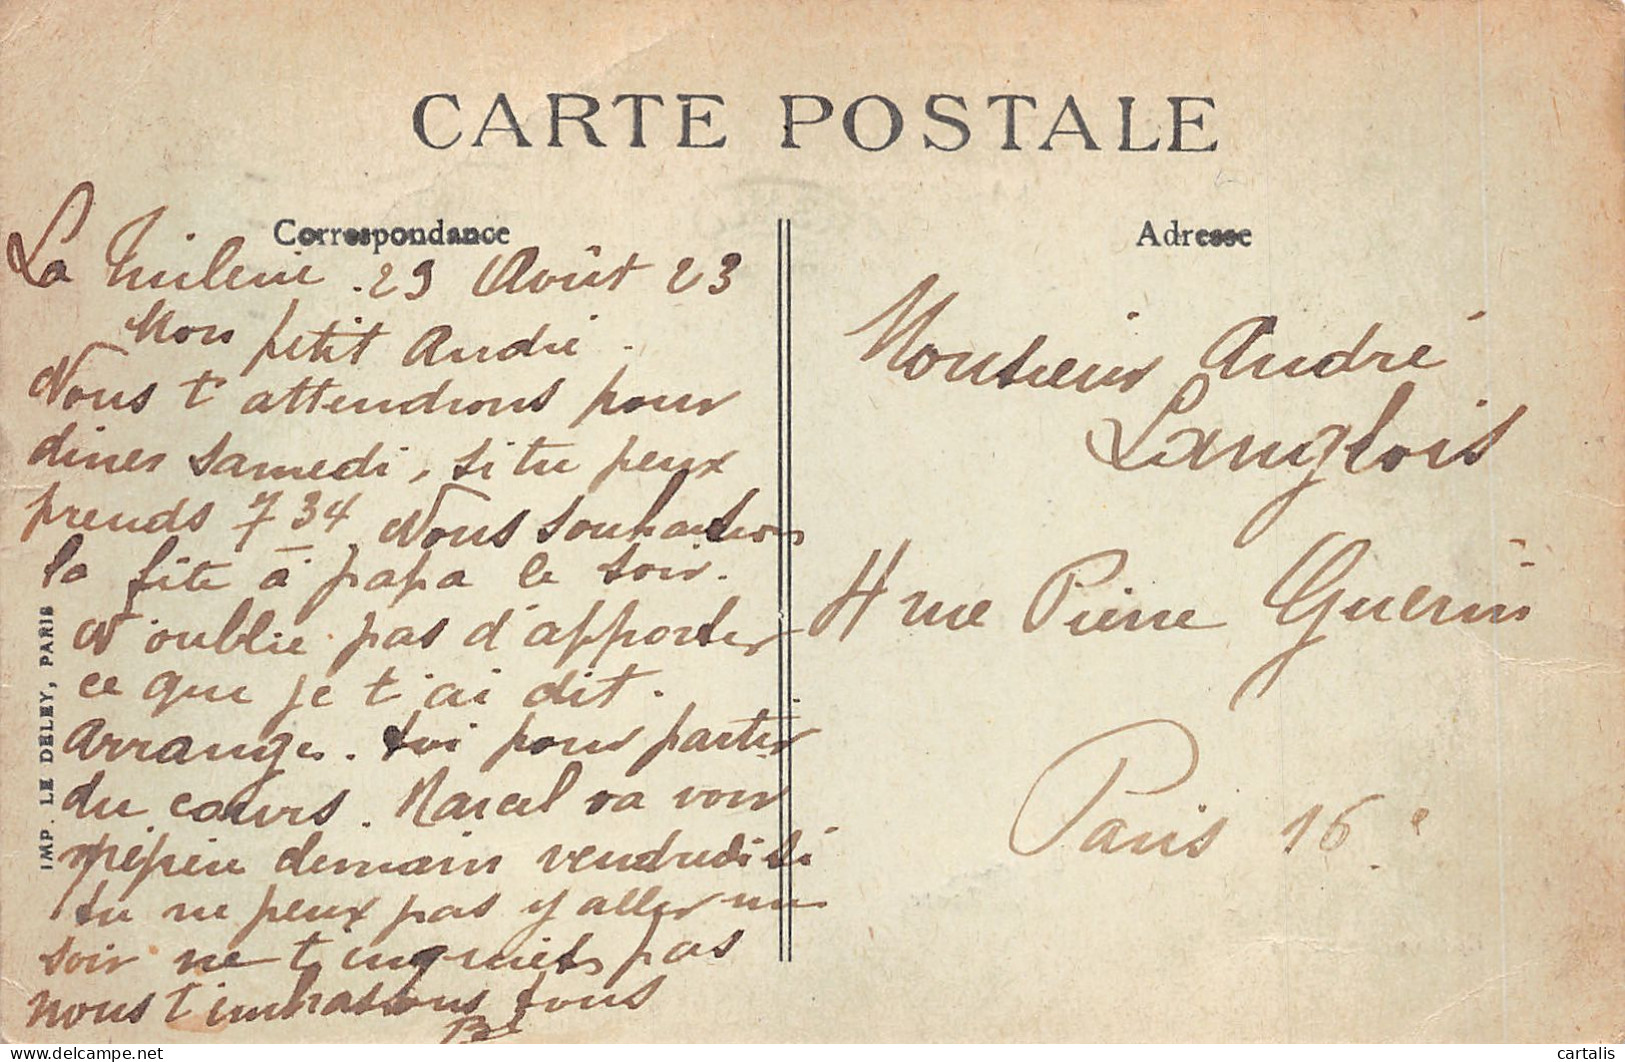 CARTE POSTALE
Correspondance
Adresse
La 29 Août 23
Mon petit André.
Nous t'attendrons pour
diner samedi, si tu peux
prends 7 34. Nous souhaiterons
la fête à papa le soir.
N'oublie pas d'apporter
ce que je t'ai dit.
Arrange. toi pour partir
du cours. Marcel va voir
pépin demain vendredi si
tu ne peux pas y aller un
soir ne t'inquiets pas
nous t'embrassons tous
IMP. LE DELEY, PARIS
Monsieur André
Langlois
4 rue Pierre Guerin
Paris 16e
cartalis